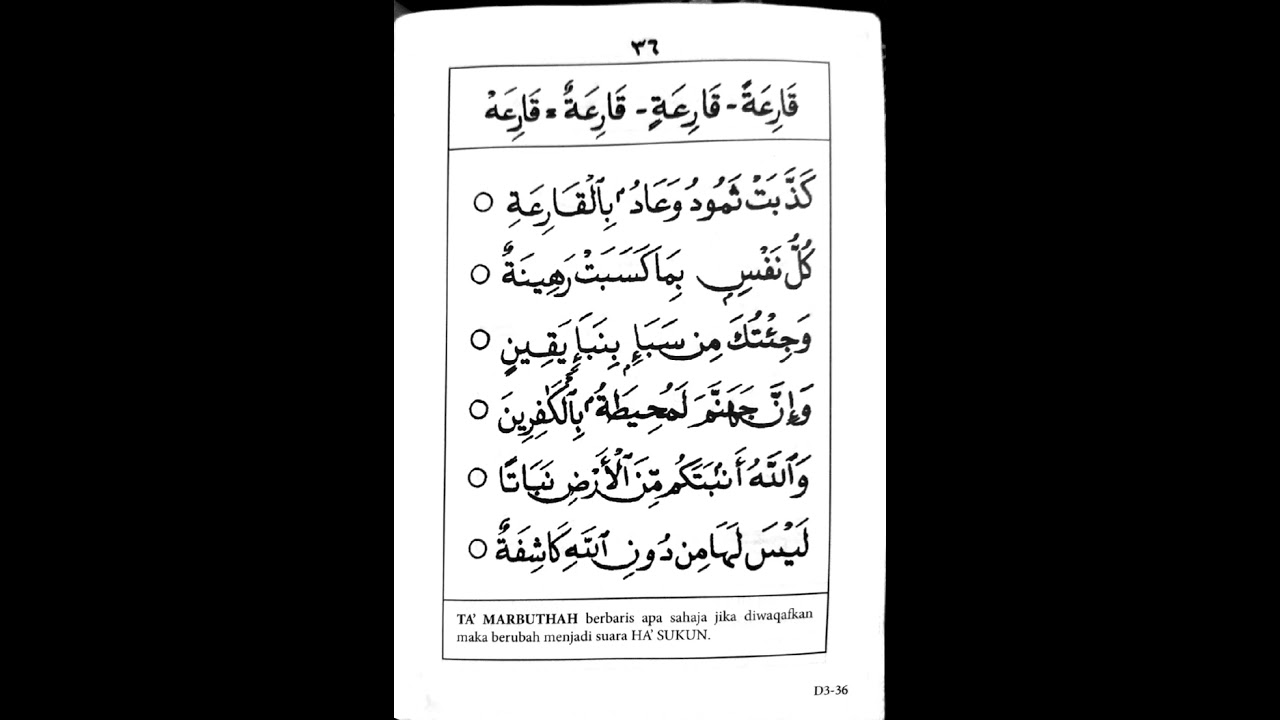 ٣٦
قَارِعَةً - قَارِعَةٍ - قَارِعَةٌ = قَارِعَهْ
كَذَّبَتْ ثَمُودُ وَعَادُۢ بِٱلْقَارِعَةِ ○
كُلُّ نَفْسٍۭ بِمَا كَسَبَتْ رَهِينَةٌ ○
وَجِئْتُكَ مِن سَبَإٍۭ بِنَبَإٍ يَقِينٍ ○
وَإِنَّ جَهَنَّمَ لَمُحِيطَةٌۢ بِٱلْكَٰفِرِينَ ○
وَٱللَّهُ أَنۢبَتَكُم مِّنَ ٱلْأَرْضِ نَبَاتًا ○
لَيْسَ لَهَا مِن دُونِ ٱللَّهِ كَاشِفَةٌ ○
TA' MARBUTHAH berbaris apa sahaja jika diwaqafkan
maka berubah menjadi suara HA' SUKUN.
D3-36